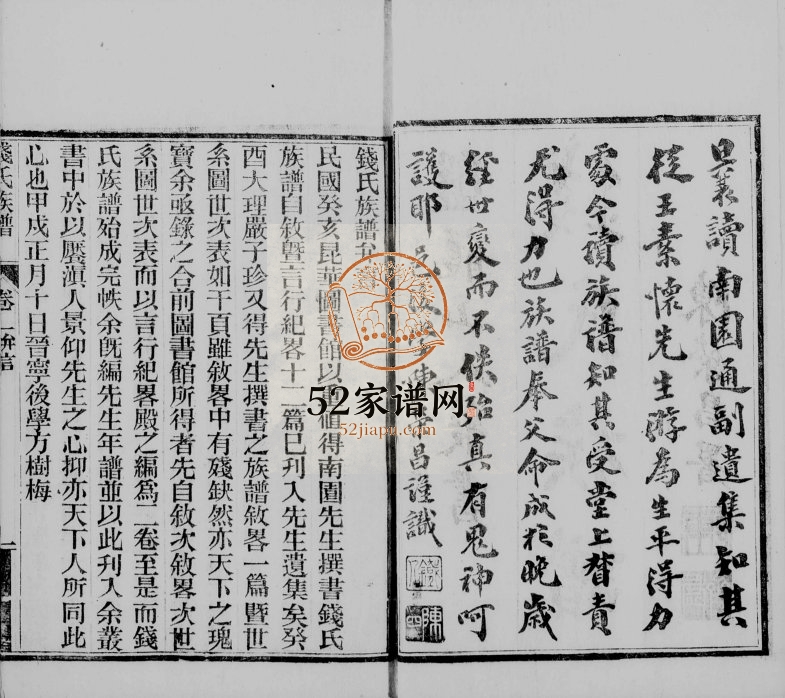 曩讀南園通副遺集知其
從王素懷先生游為生平得力
處今讀族譜知其受堂上督責
尤得力也族譜奉父命成於晚歲
經世變而不佚殆真有鬼神呵
護耶
昌謹識
錢氏族譜弁
民國癸亥昆華圖書館以重值得南園先生撰書錢氏
族譜自敘暨言行紀畧十二篇已刋入先生遺集矣癸
酉大理嚴子珍又得先生撰書之族譜敘畧一篇暨世
系圖世次表如干頁雖敘畧中有殘缺然亦天下之瑰
寶余亟錄之合前圖書館所得者先自敘次敘畧次世
系圖世次表而以言行紀畧殿之編爲二卷至是而錢
氏族譜始成完帙余旣編先生年譜並以此刋入余叢
書中於以饜滇人景仰先生之心抑亦天下人所同此
心也甲戌正月十日晉寧後學方樹梅
錢氏族譜
卷一弁言
一
52家谱网
52jiapu.com